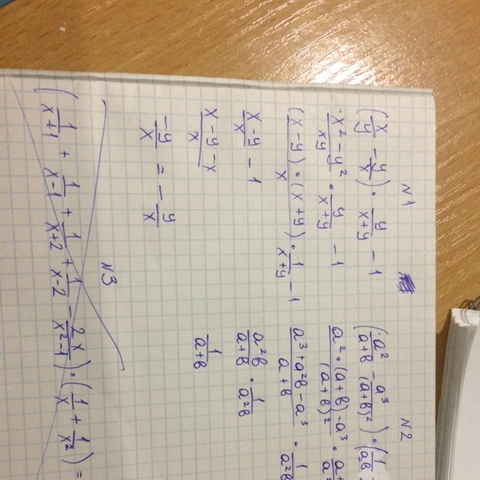 N1
(x/y - y/x) · y/(x+y) - 1
(x² - y²)/(xy) · y/(x+y) - 1
((x-y)·(x+y))/x · 1/(x+y) - 1
(x-y)/x - 1
(x-y-x)/x
-y/x = - y/x
N2
(a²/(a+b) - a³/(a+b)²) · (1/(ab)
(a²·(a+b) - a³)/(a+b)² ·
(a³+a²b-a³)/(a+b) · 1/(a²b
a²b/(a+b) · 1/(a²b)
1/(a+b)
N3
(1/(x+1) + 1/(x-1) + 1/(x+2) + 1/(x-2) - 2x/(x²-1)) · (1/x + 1/x²) =